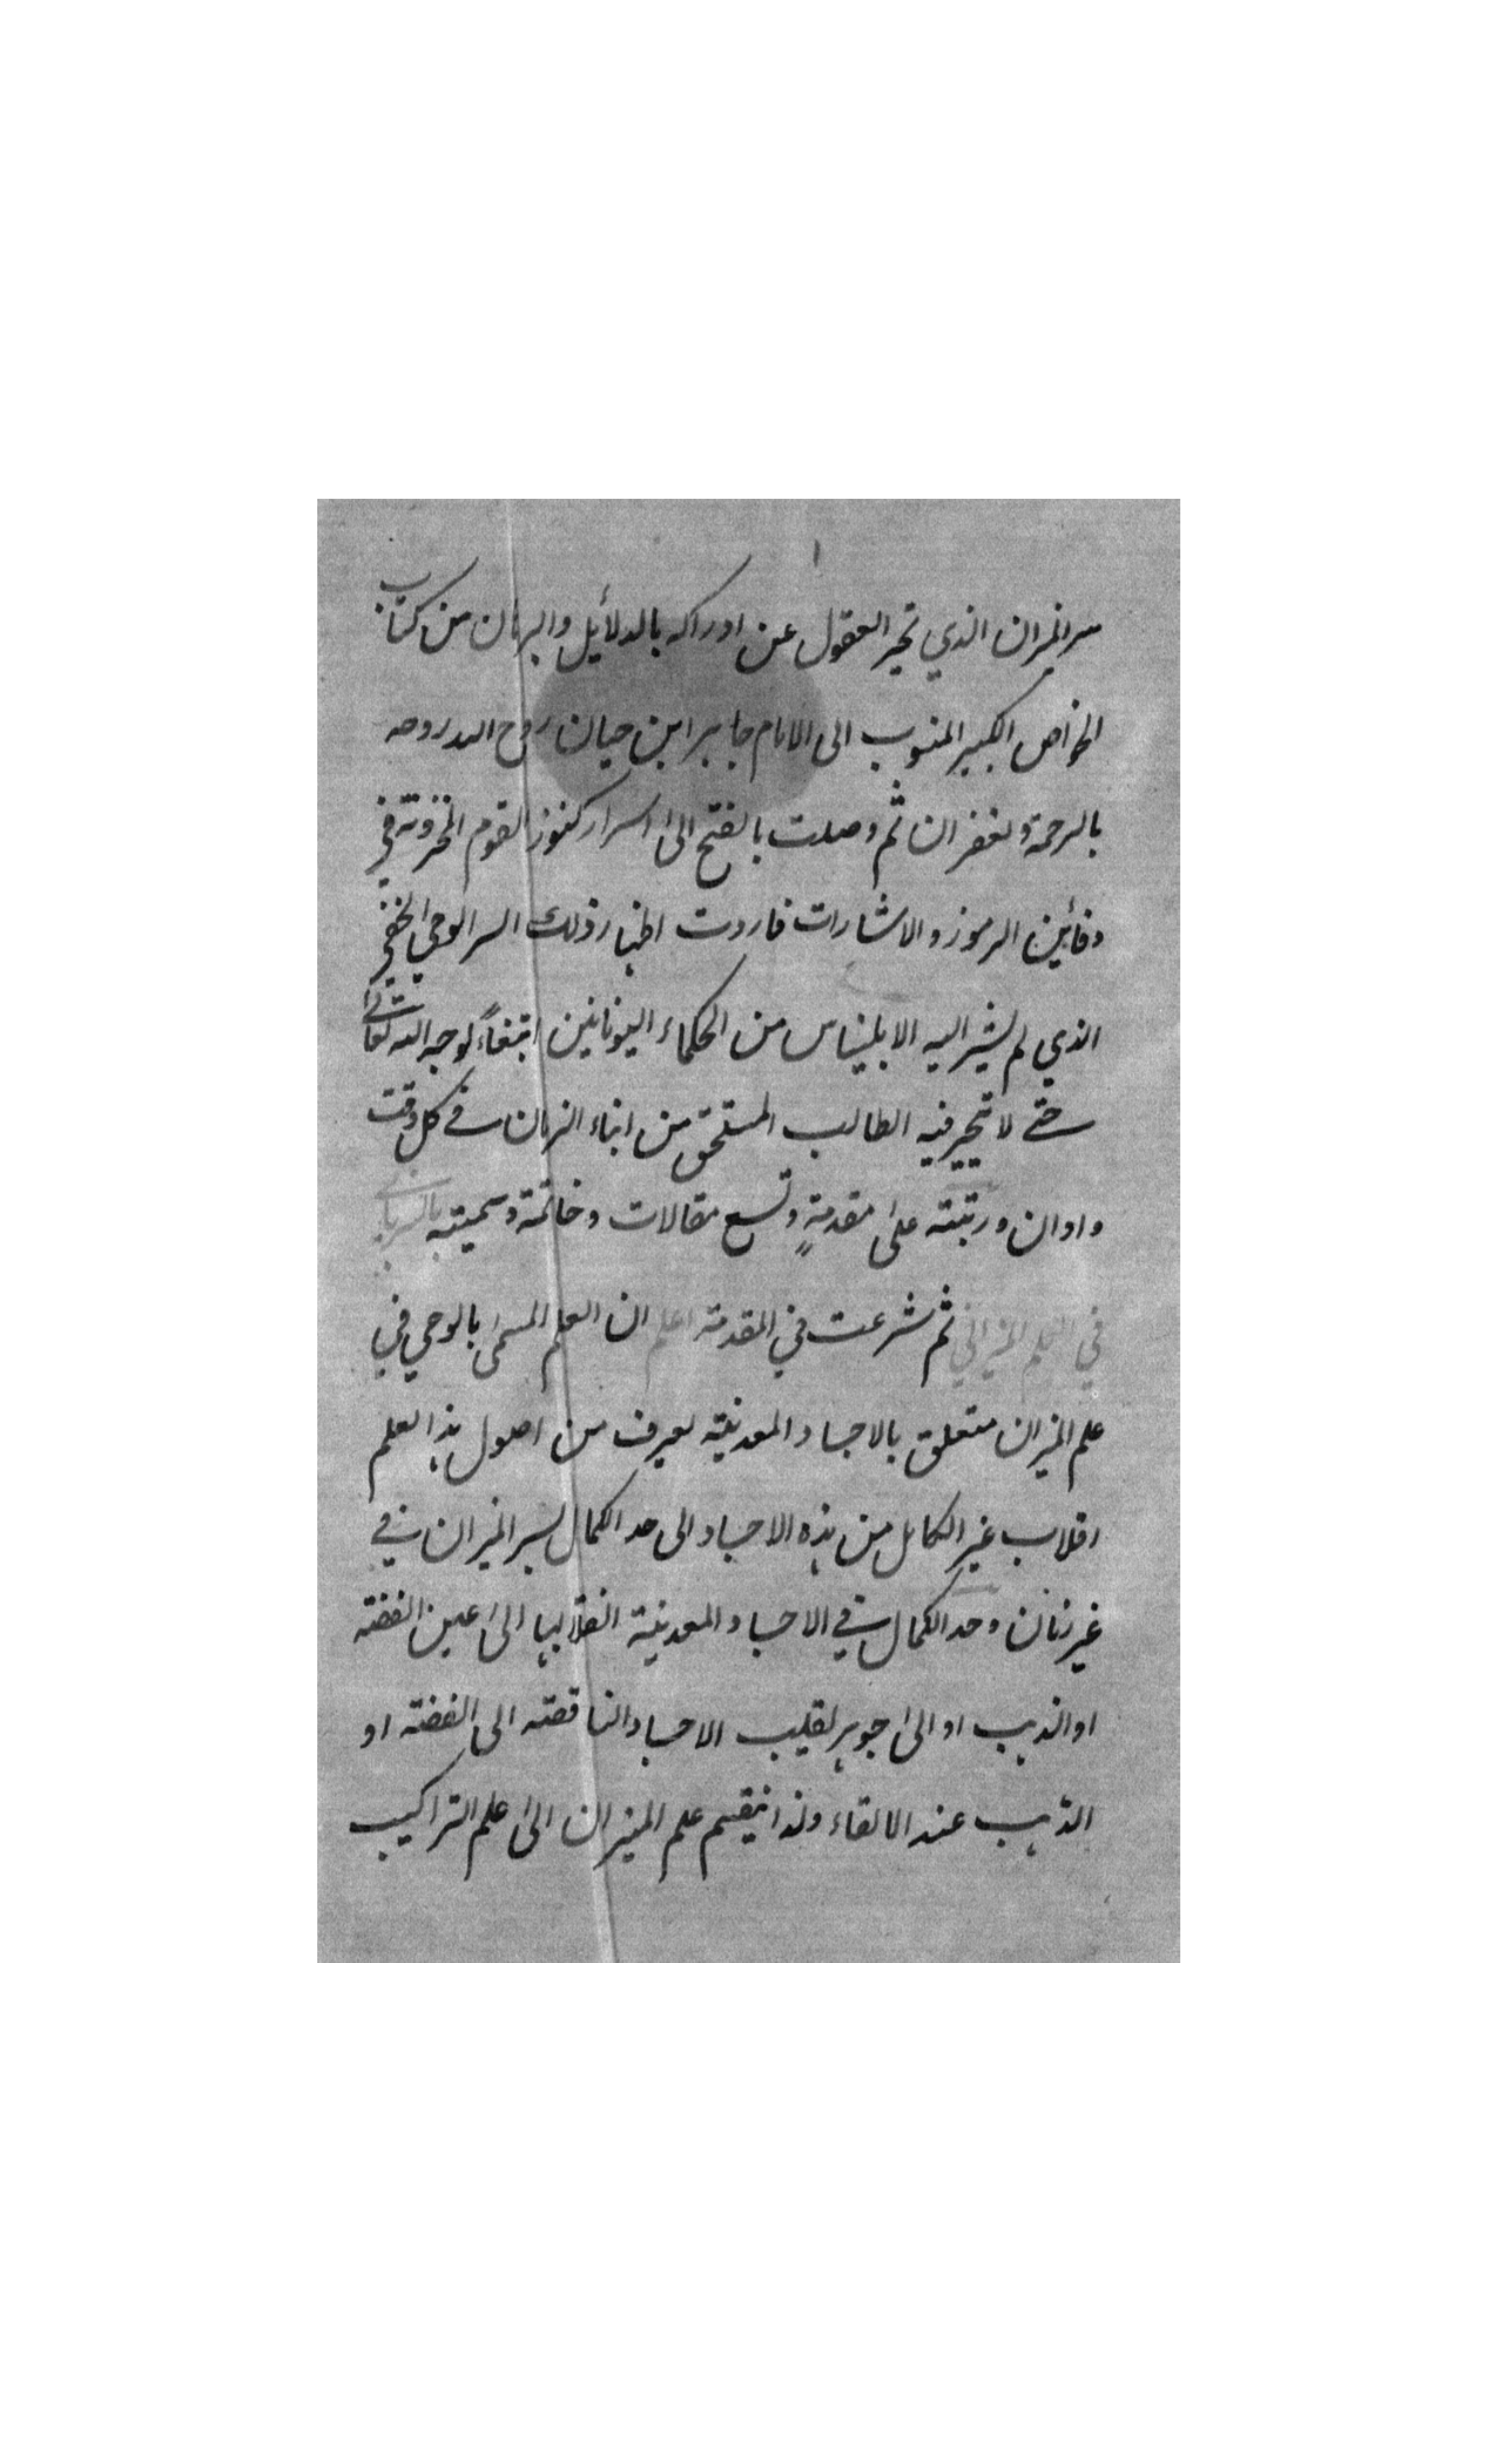 سر الميزان الذي تحير العقول عن ادراكه بالدلائل والبرهان من كتاب
الخواص الكبير المنسوب الى الامام جابر ابن حيان روح الله روحه
بالرحمة والغفران ثم وصلت بالفتح الى اسرار كنوز القوم المخزونة في
دفائن الرموز والاشارات فاردت اظهار ذلك السر الوحي الخفي
الذي لم يشير اليه الا بليناس من الحكماء اليونانين ابتغاءً لوجه الله تعالى
حتى لا يتحير فيه الطالب المستحق من ابناء الزمان في كل وقت
واوان ورتبته على مقدمةٍ وتسع مقالات وخاتمة وسميته
في العلم الميزاني ثم شرعت في المقدمة اعلم ان العلم المسمى بالوحي في
علم الميزان متعلق بالاجساد المعدنية يعرف من اصول هذا العلم
اقلاب غير الكامل من هذه الاجساد الى حد الكمال بسر الميزان في
غير زمان وحد الكمال في الاجساد المعدنية انقلابها الى عين الفضة
او الذهب او الى جوهر يقلب الاجساد الناقصة الى الفضة او
الذهب عند الالقاء ولذا ينقسم علم الميزان الى علم التراكيب